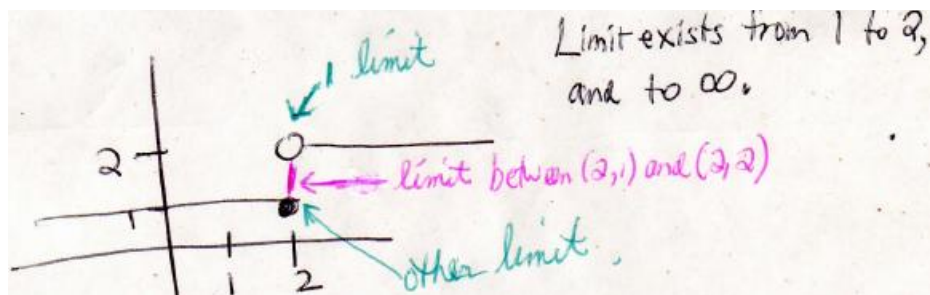 Limit exists from 1 to 2,
and to ∞.
1 limit
2
limit between (2,1) and (2,2)
1
other limit.
1 2